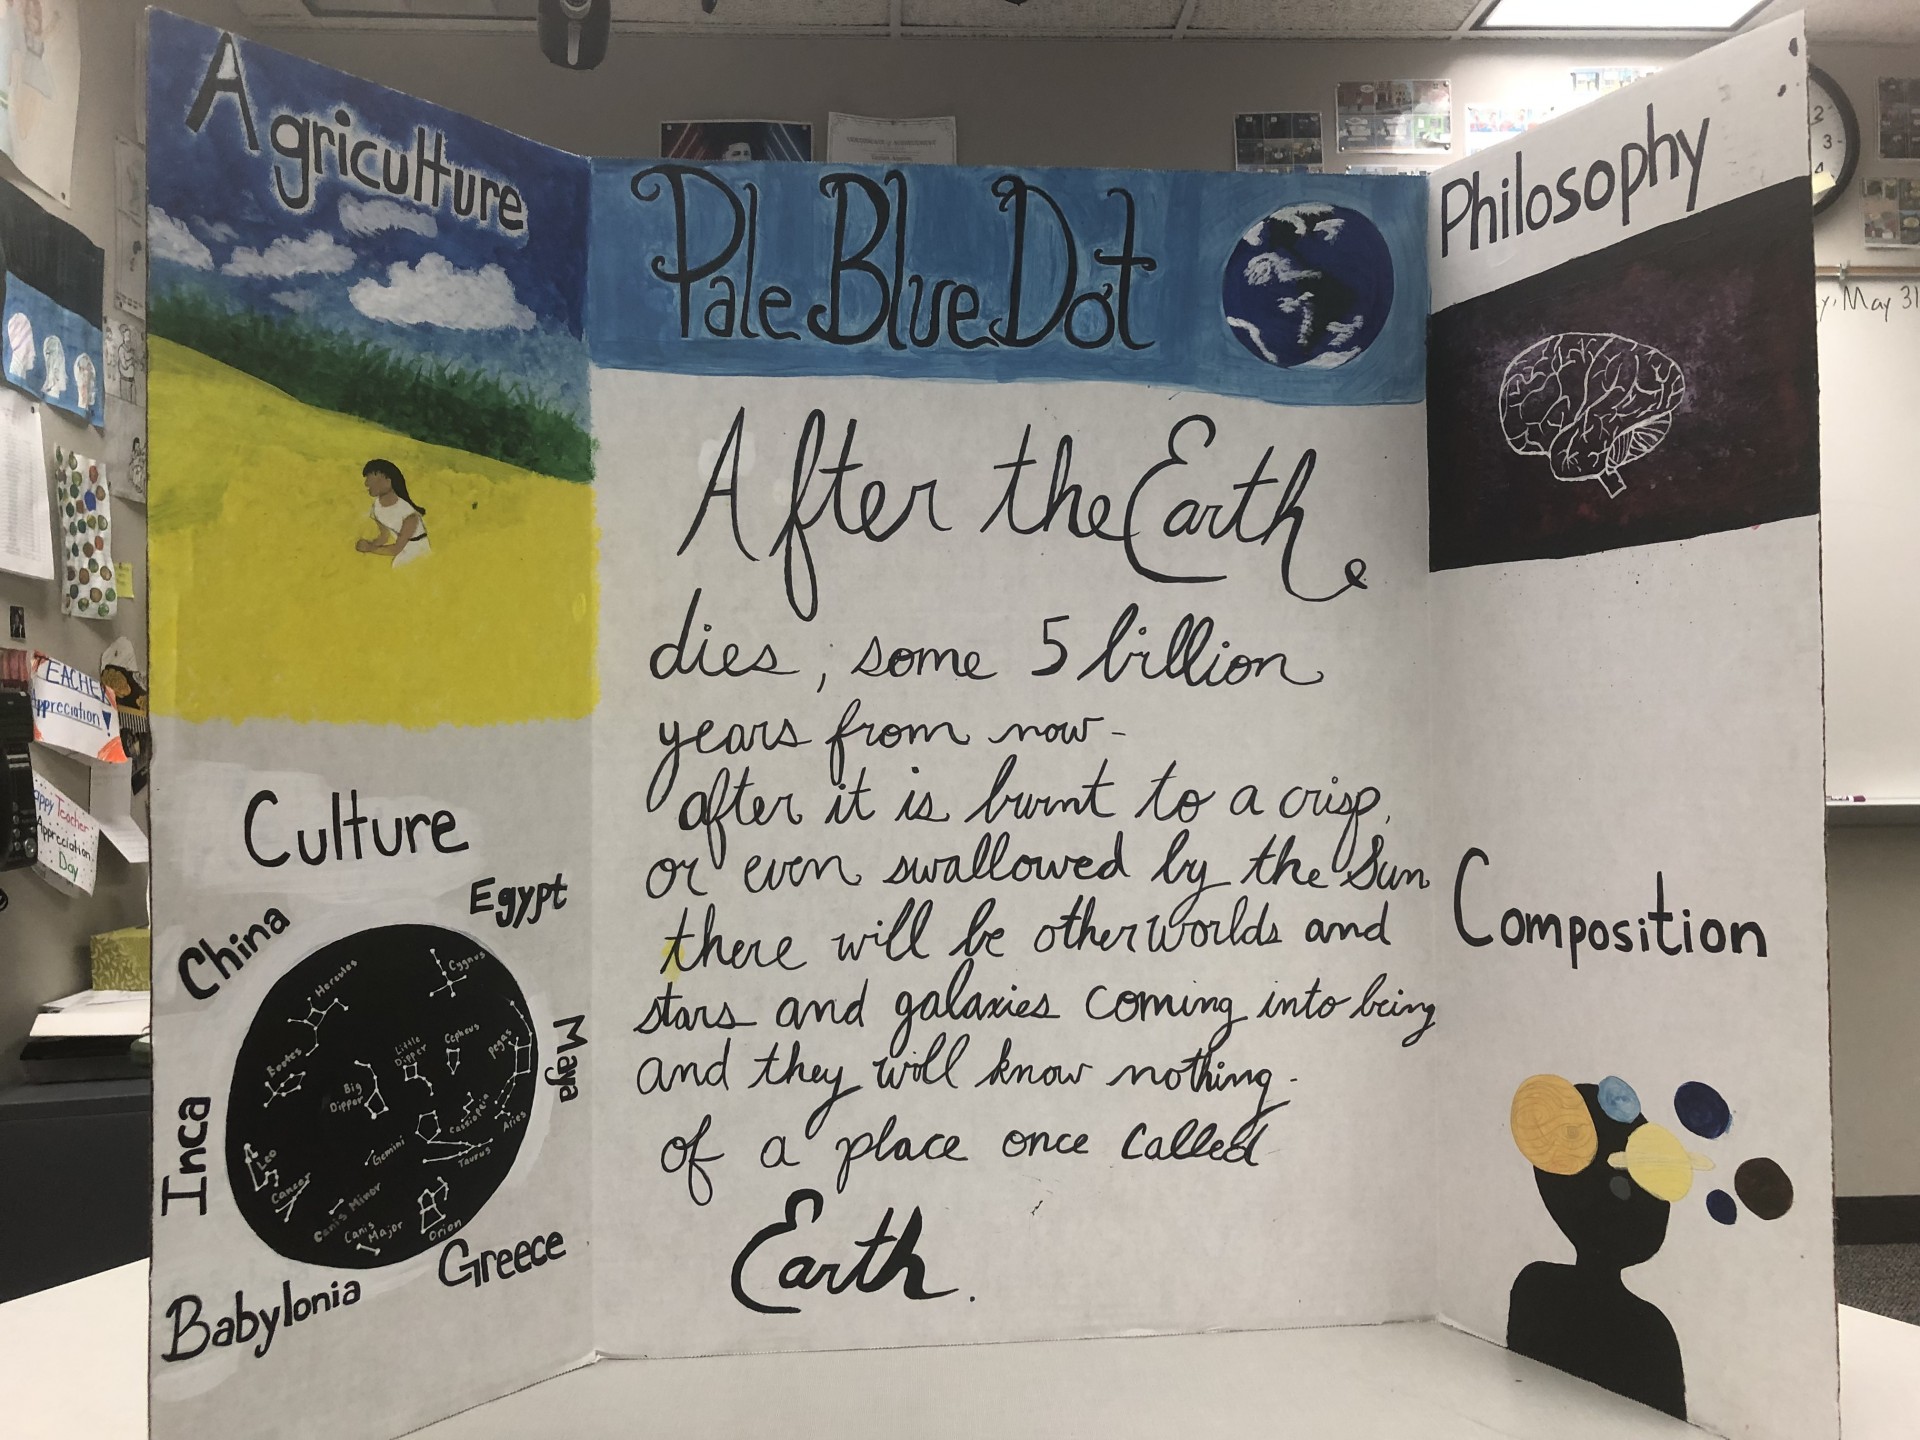 Agriculture
Culture
China
Egypt
Maya
Inca
Greece
Babylonia
Hercules
Cygnus
Bootes
Big
Dipper
Little
Dipper
Cepheus
Leo
Cancer
Gemini
Cassiopeia
Aries
Taurus
Canis Minor
Canis
Major
Orion
Pale Blue Dot
After the Earth
dies, some 5 billion
years from now-
after it is burnt to a crisp,
or even swallowed by the Sun
there will be other worlds and
stars and galaxies coming into being
and they will know nothing
of a place once called
Earth.
Philosophy
Composition
TEACHER
Appreciation!
Happy Teacher
Appreciation
Day
2
3
4
May 31